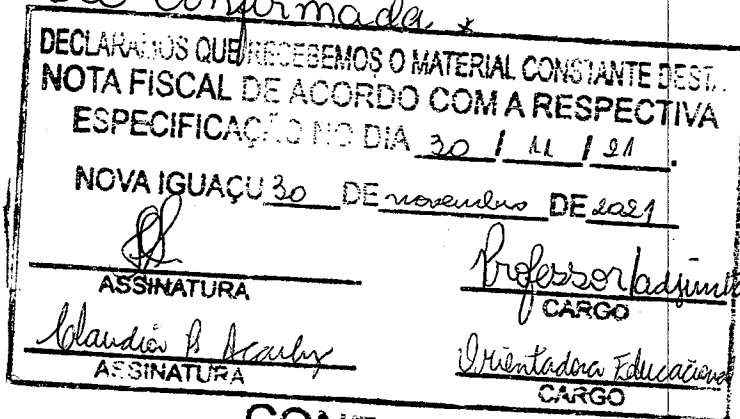 confirmada *
DECLARAMOS QUE RECEBEMOS O MATERIAL CONSTANTE DEST
NOTA FISCAL DE ACORDO COM A RESPECTIVA
ESPECIFICAÇÃO NO DIA 30 / 11 / 21.
NOVA IGUAÇU 30 DE novembro DE 2021
Professor/adjunto
ASSINATURA CARGO
Claudia Orientadora Educaciona
ASSINATURA CARGO